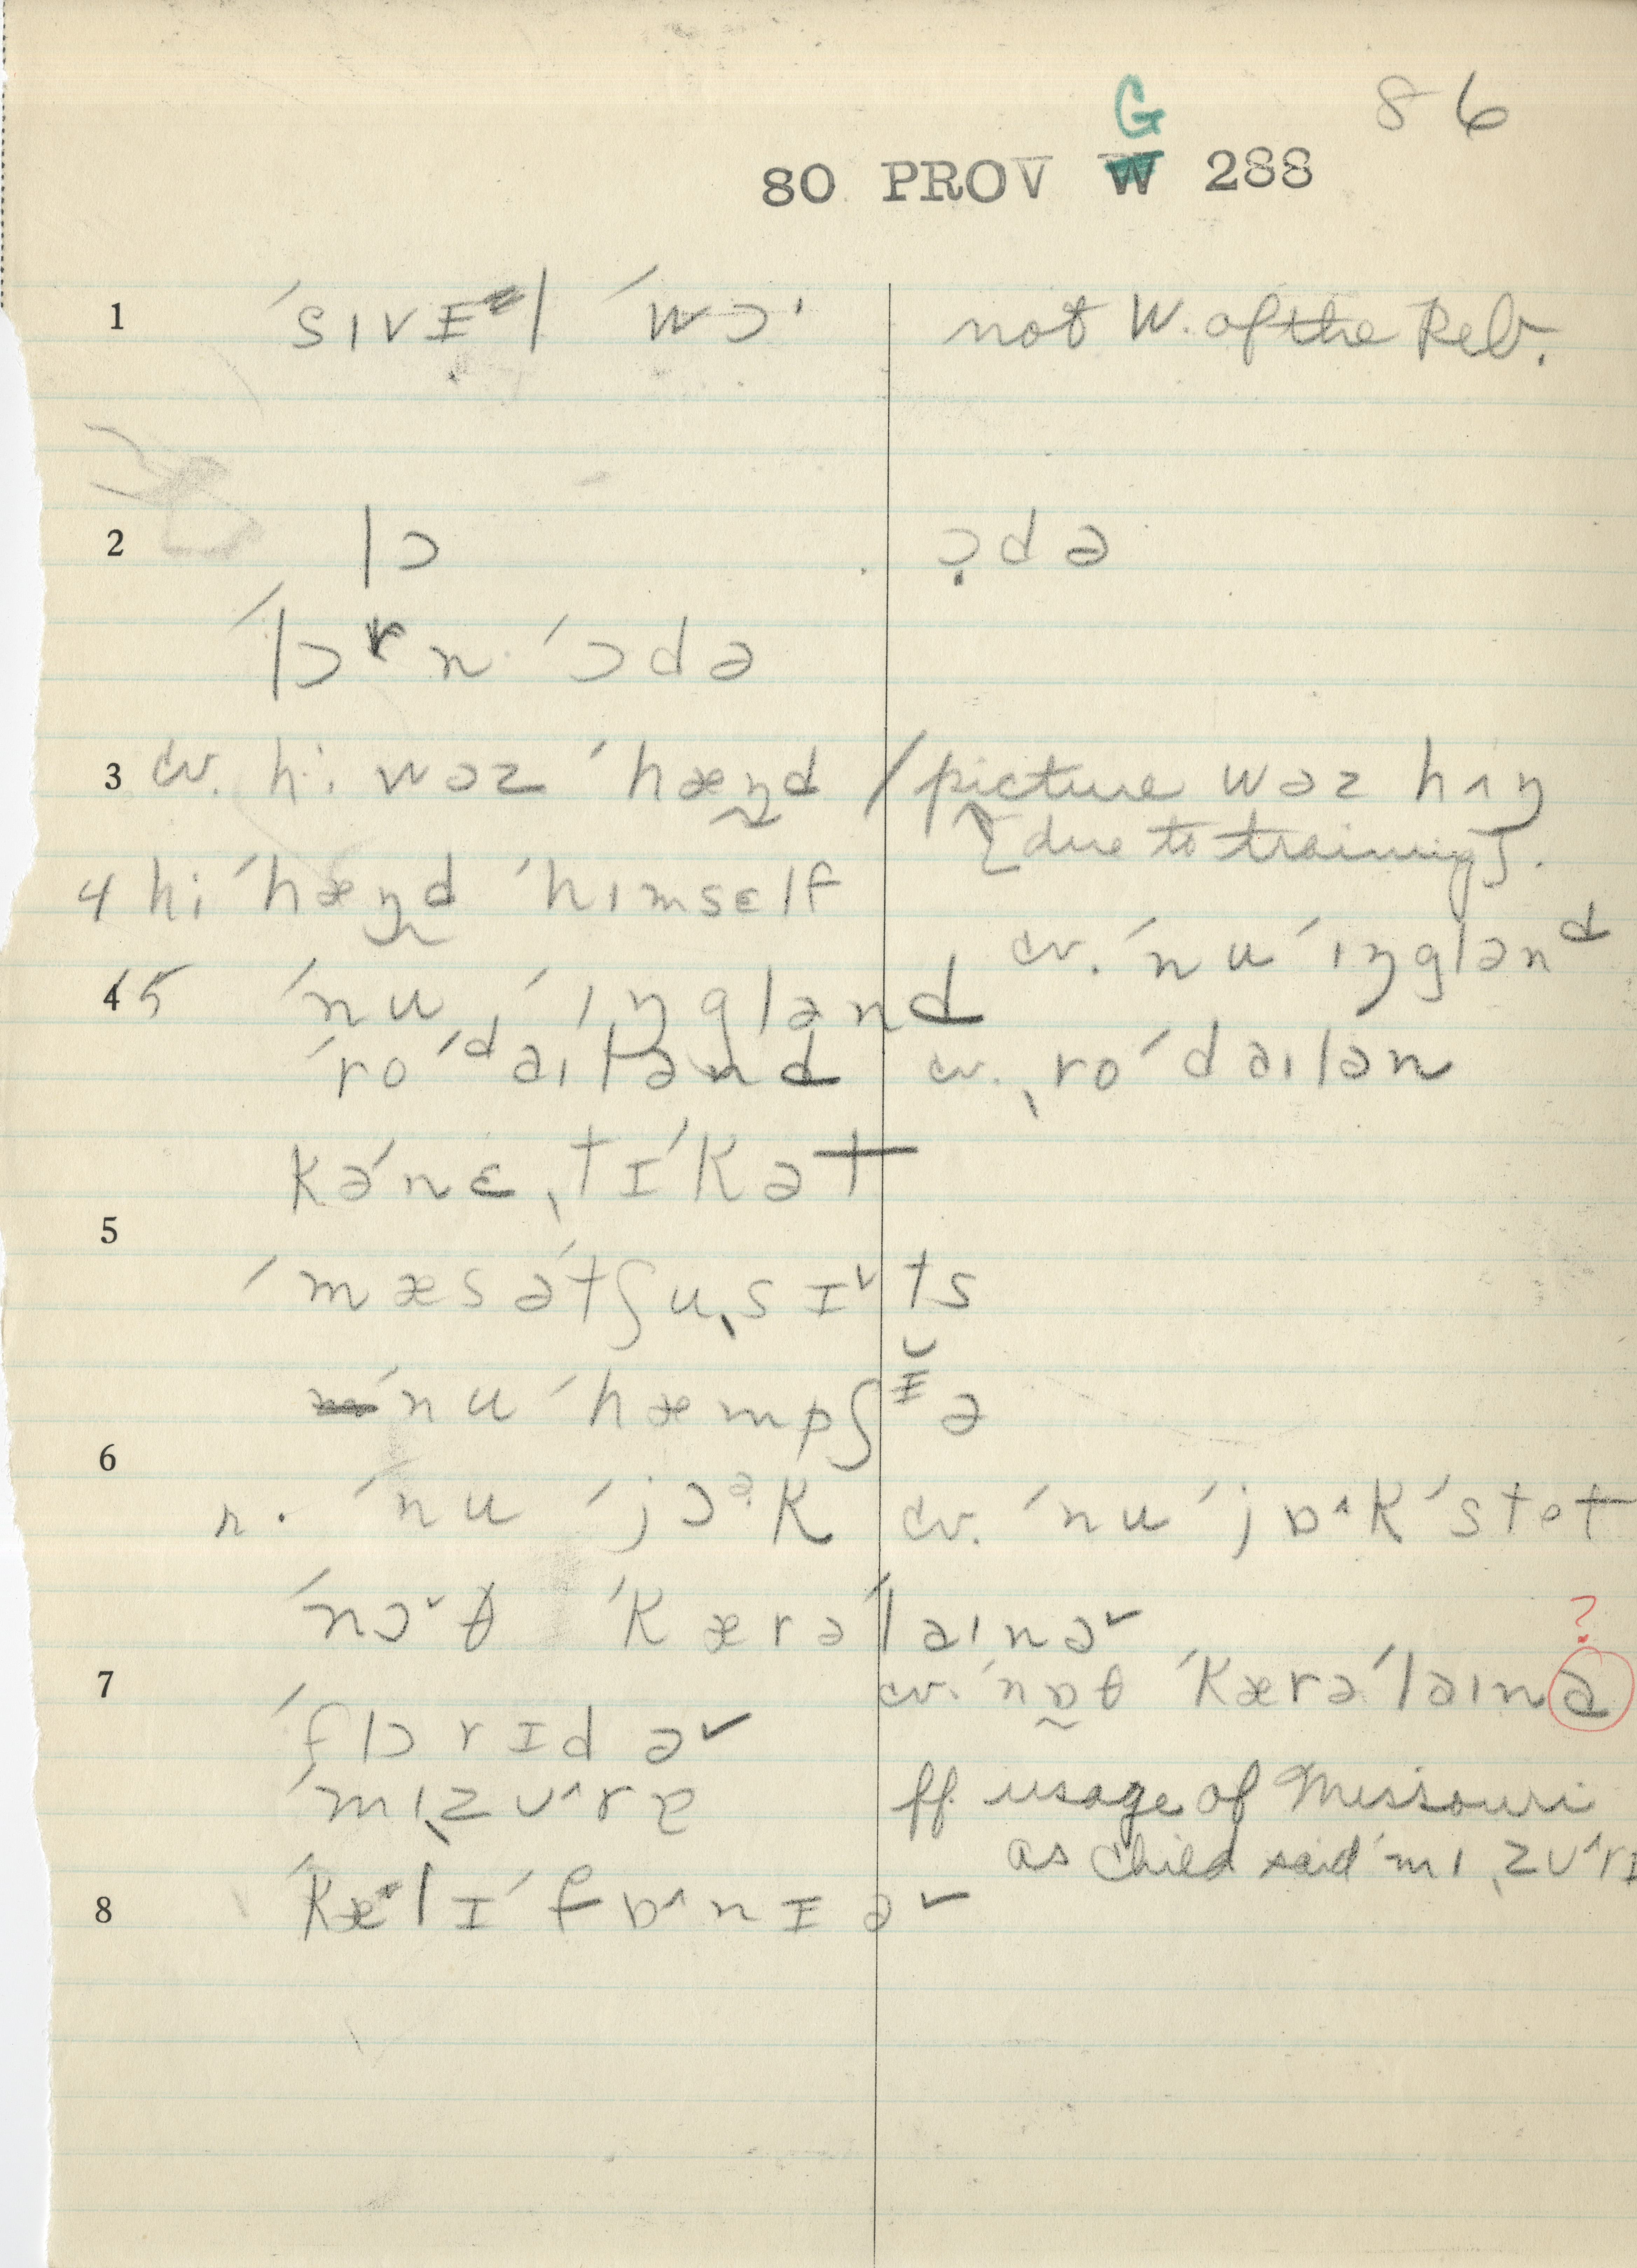 86
G
80 PROV W 288
1 ˈsɪvɪl ˈwɔ· not W. of the Reb.
2 lɔ ɔ̣də
ˈlɔrn ˈɔdə
3 cv. hi· wəz ˈhæŋd / picture wəz hʌŋ
[due to training].
4 hi ˈhæŋd ˈhɪmsɛlf
cv. ˈnu ˈɪŋgləⁿᵈ
4 5 ˈnu ˈɪŋglənd
ˈro ˈdaɪlənd cv. ˌro ˈdaɪlən
kəˈnɛˌtɪˈkət
5
ˈmæsəˈtʃuˌsɪ˅ts
ˈnu ˈhæmpʃɪə
6
r. ˈnu ˈjɔᵊk cv. ˈnu ˈjɒ^k ˈstet
ˈnɔ˅θ ˈkærəˈlaɪnə˅
?
7 cv. ˈnɒθ ˈkærəˈlaɪnə
ˈflɔrɪdə˅
ˈmɪˌzʊ^rə ff. usage of Missouri
as child said ˈmɪˌzʊ^rɪ
8 ˈkælɪˈfɒ^nɪə˅